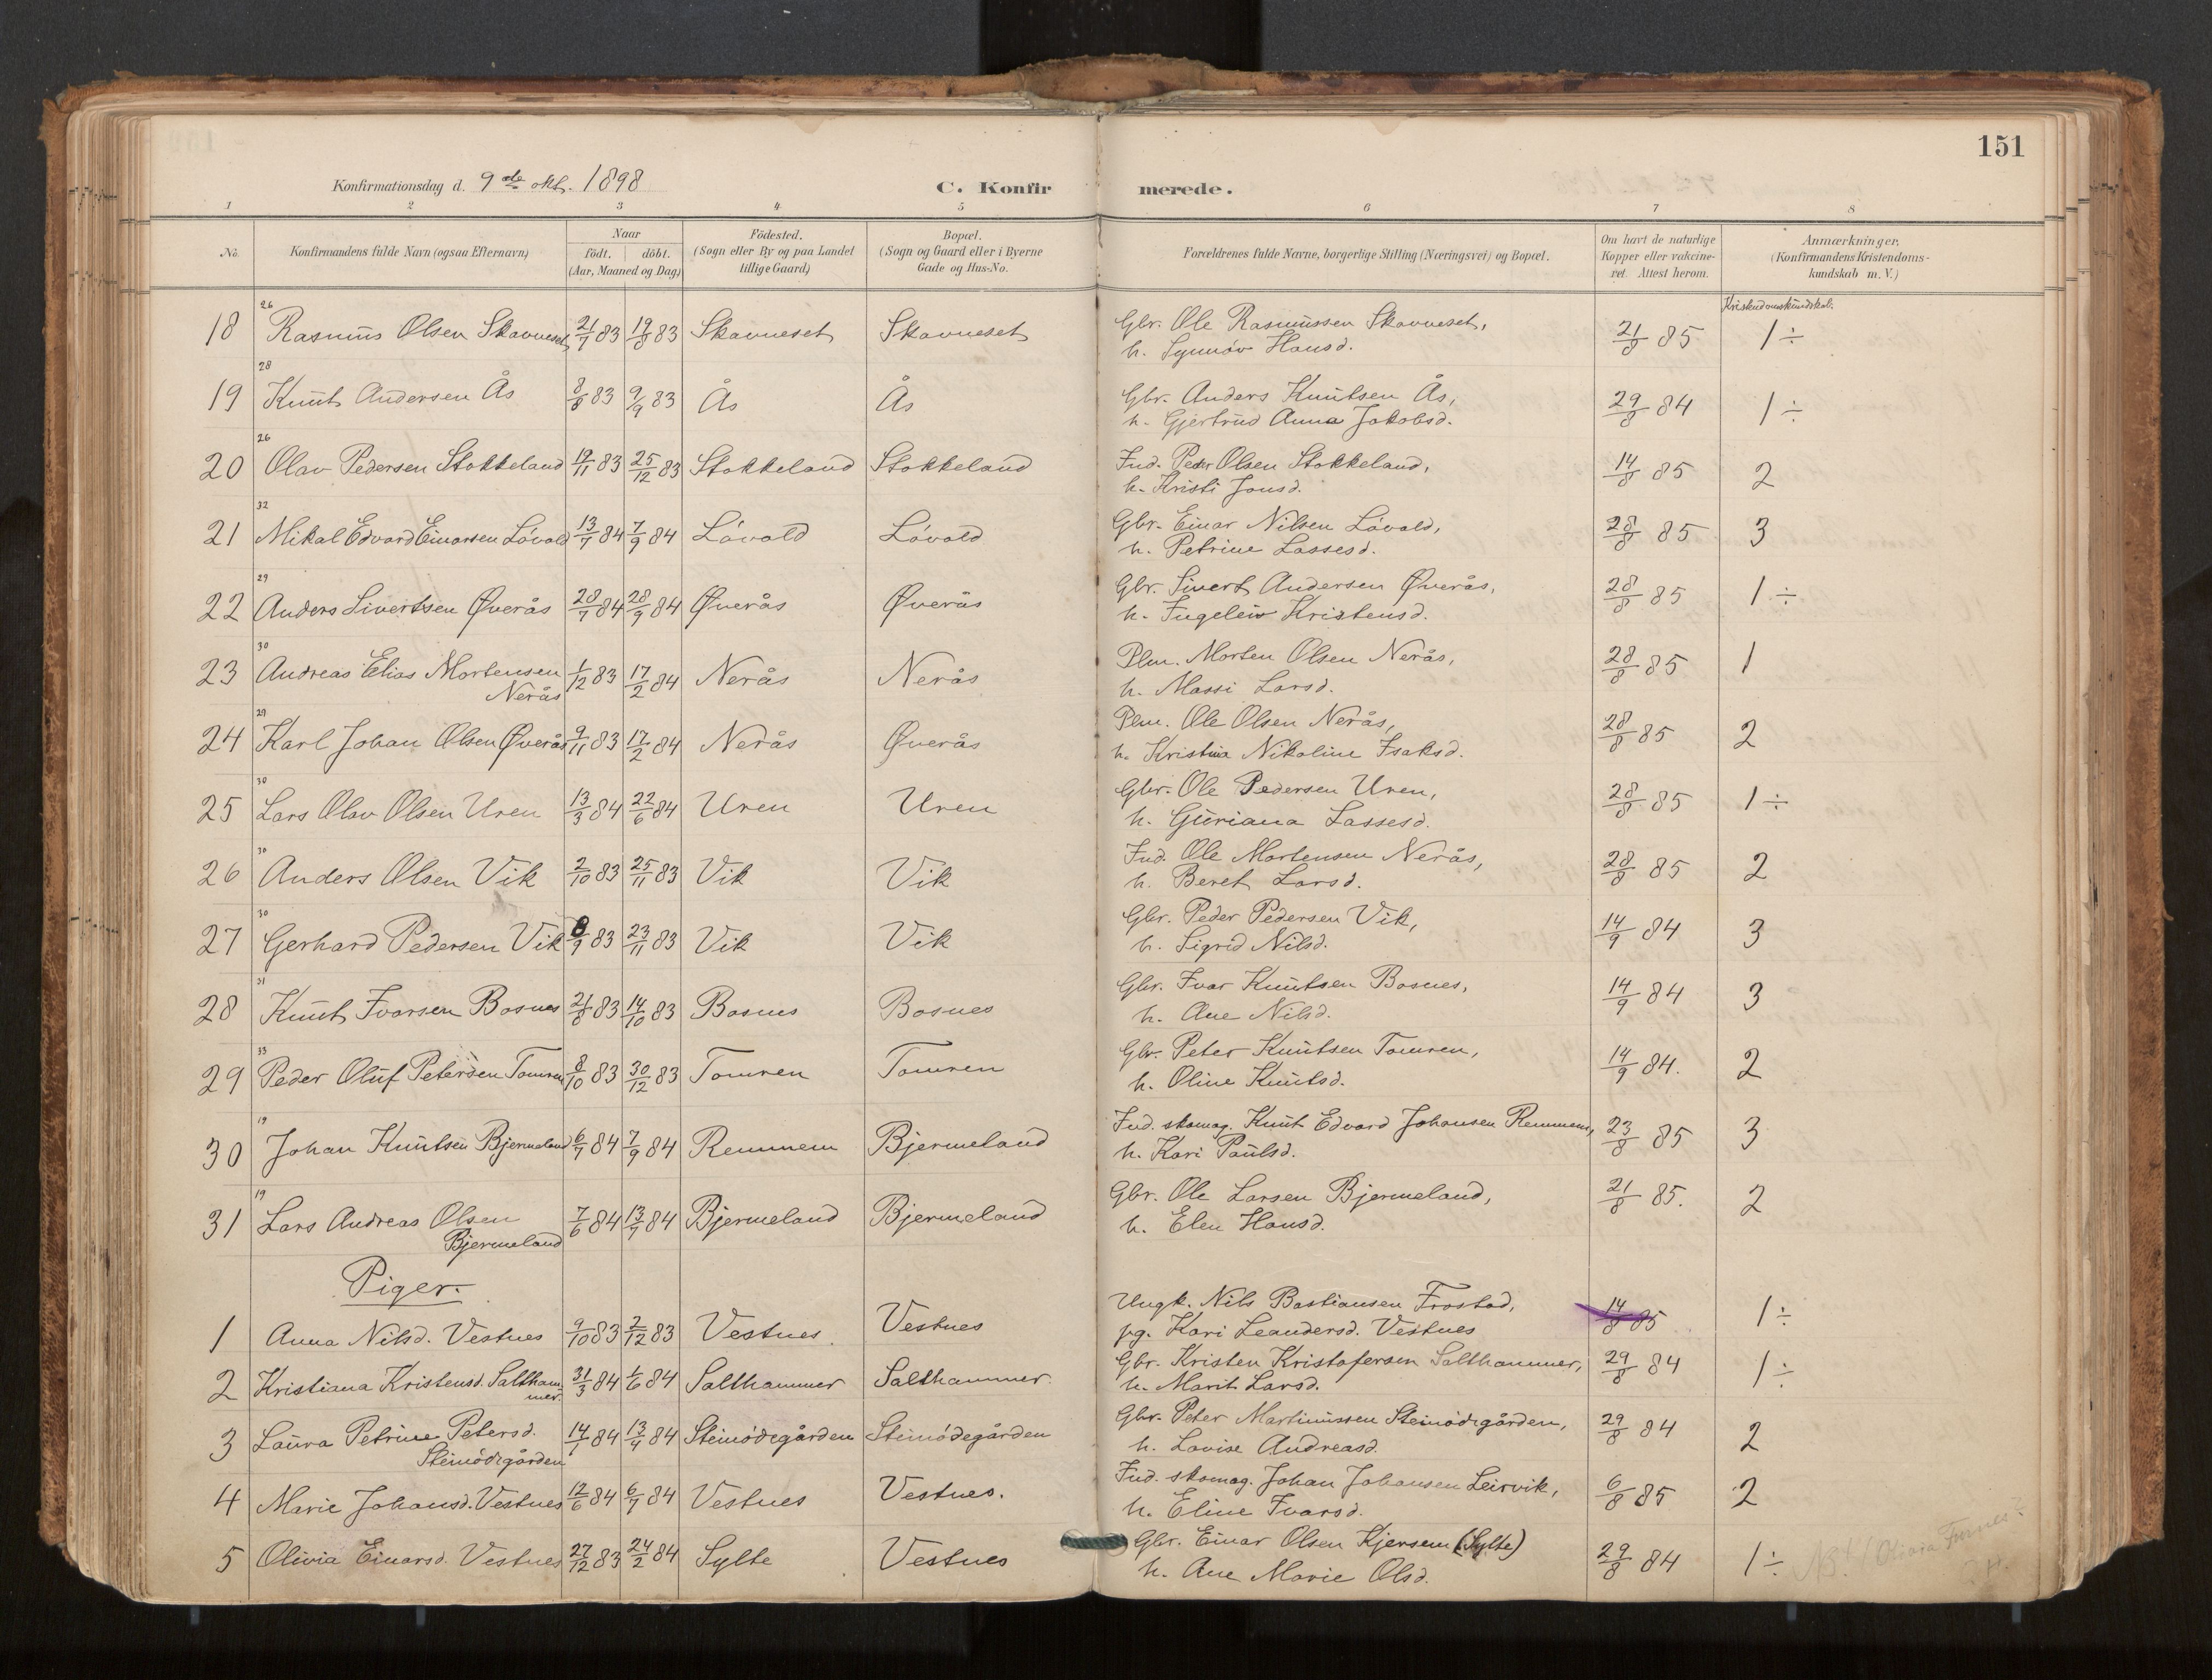 151
Konfirmationsdag d. 9de okt. 1898 C. Konfirmerede.
1 2 3 4 5 6 7 8
No. Konfirmandens fulde Navn (ogsaa Efternavn) Naar födt. döbt. (Aar, Maaned og Dag) Födested. (Sogn eller By og paa Landet tillige Gaard) Bopæl. (Sogn og Gaard eller i Byerne Gade og Hus-No. Forældrenes fulde Navne, borgerlige Stilling (Næringsvei) og Bopæl. Om havt de naturlige Kopper eller vakcineret. Attest herom. Anmærkninger. (Konfirmandens Kristendomskundskab m. V.)
Kristendomskundskab.
26
18 Rasmus Olsen Skavneset 21/7 83 19/8 83 Skavneset Skavneset Gbr. Ole Rasmussen Skavneset, 21/8 85 1÷
h. Synnöv Hansd.
28
19 Knut Andersen Ås 8/8 83 9/9 83 Ås Ås Gbr. Anders Knutsen Ås, 29/8 84 1÷
h. Gjertrud Anna Jakobsd.
26
20 Olav Pedersen Stokkeland 19/11 83 25/12 83 Stokkeland Stokkeland Ind. Peder Olsen Stokkeland, 14/8 85 2
h. Kristi Jonsd.
32
21 Mikal Edvard Einarsen Lövold 13/7 84 7/9 84 Lövold Lövold Gbr. Einar Nilsen Lövold, 28/8 85 3
h. Petrine Lassesd.
29
22 Anders Sivertsen Øverås 28/7 84 28/9 84 Øverås Øverås Gbr. Sivert Andersen Øverås, 28/8 85 1÷
h. Ingeleiv Kristensd.
30
23 Andreas Elias Mortensen 1/12 83 17/2 84 Nerås Nerås Plm. Morten Olsen Nerås, 28/8 85 1
Nerås h. Massi Larsd.
29
24 Karl Johan Olsen Øverås 9/11 83 17/2 84 Nerås Øverås Plm. Ole Olsen Nerås, 28/8 85 2
h. Kristina Nikoline Isaksd.
30
25 Lars Olav Olsen Uren 13/3 84 22/6 84 Uren Uren Gbr. Ole Pedersen Uren, 28/8 85 1÷
h. Guriana Lassesd.
30
26 Anders Olsen Vik 2/10 83 25/11 83 Vik Vik Ind. Ole Mortensen Nerås, 28/8 85 2
h. Beret Larsd.
30
27 Gerhard Pedersen Vik 8/9 83 23/11 83 Vik Vik Gbr. Peder Pedersen Vik, 14/9 84 3
h. Sigrid Nilsd.
31
28 Knut Ivarsen Bosnes 21/8 83 14/10 83 Bosnes Bosnes Gbr. Ivar Knutsen Bosnes, 14/9 84 3
h. Ane Nilsd.
33
29 Peder Oluf Petersen Tomren 8/10 83 30/12 83 Tomren Tomren Gbr. Peter Knutsen Tomren, 14/9 84. 2
h. Oline Knutsd.
19
30 Johan Knutsen Bjermeland 6/7 84 7/9 84 Remmem Bjermeland Ind. skomag. Knut Edvard Johansen Remmem, 23/8 85 3
h. Kari Paulsd.
19
31 Lars Andreas Olsen 7/6 84 13/7 84 Bjermeland Bjermeland Gbr. Ole Larsen Bjermeland, 21/8 85. 2
Bjermeland h. Elen Hansd.
Piger.
1 Anna Nilsd. Vestnes 9/10 83 2/12 83 Vestnes. Vestnes Ungk. Nils Bastiansen Frostad, 14/8 85 1÷
pg. Kari Leandersd. Vestnes
2 Kristiana Kristensd. Salthammer. 31/3 84 1/6 84 Salthammer Salthammer. Gbr. Kristen Kristofersen Salthammer, 29/8 84 1÷
h. Marit Larsd.
3 Laura Petrine Petersd. 14/1 84 13/4 84 Steinödegården Steinödegården Gbr. Peter Martinussen Steinödegården, 29/8 84 2
Steinödegården h. Lovise Andreasd.
4 Marie Johansd. Vestnes 12/6 84 6/7 84 Vestnes Vestnes. Ind. skomag. Johan Johansen Leirvik, 6/8 85 2
h. Eline Ivarsd.
5 Olivia Einarsd. Vestnes 27/12 83 24/2 84 Sylte Vestnes Gbr. Einar Olsen Kjersem (Sylte) 29/8 84 1÷ NB!
h. Ane Marie Olsd.